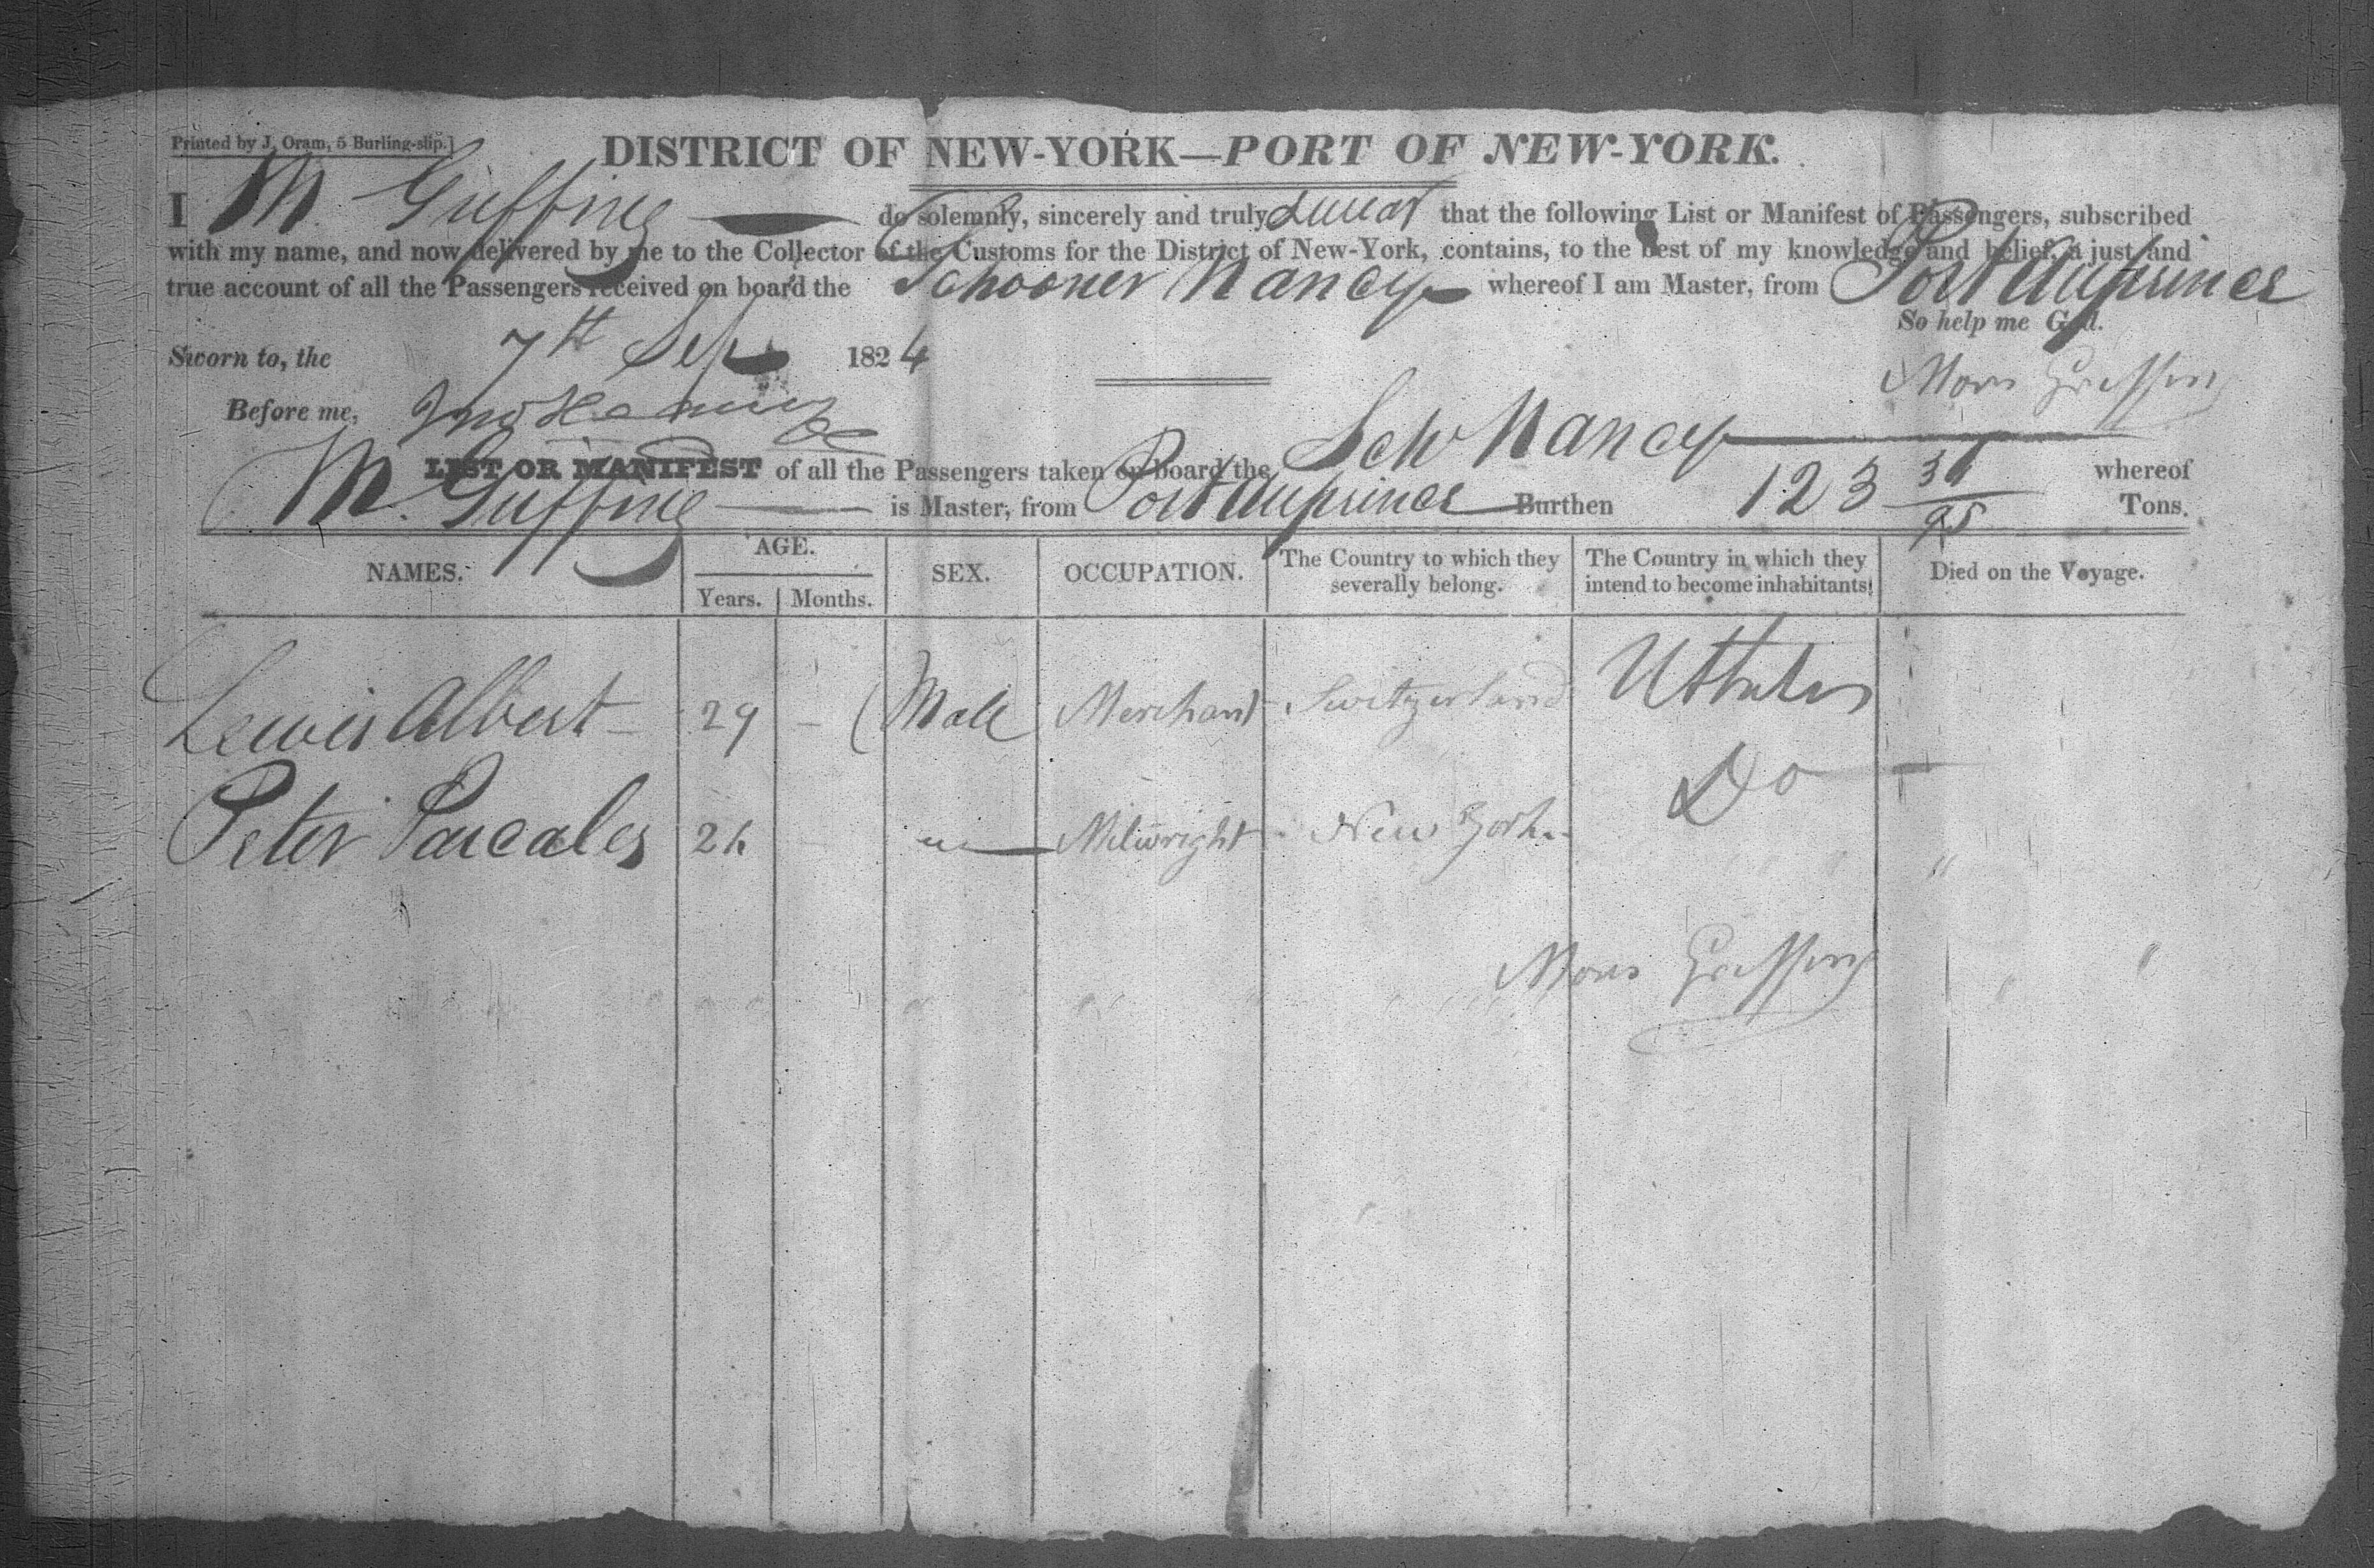 Printed by J. Oram, 5 Burling-slip.]
DISTRICT OF NEW-YORK—PORT OF NEW-YORK.
I M Griffing do solemnly, sincerely and truly swear that the following List or Manifest of Passengers, subscribed
with my name, and now delivered by me to the Collector of the Customs for the District of New-York, contains, to the best of my knowledge and belief, a just and
true account of all the Passengers received on board the Schooner Nancy whereof I am Master, from Port au prince
So help me God.
Sworn to, the 7th Sep 1824
Before me,
Griffing
LIST OR MANIFEST of all the Passengers taken on board the Sch Nancy whereof
M. Griffing is Master, from Port au prince Burthen 123 Tons.
NAMES. AGE. SEX. OCCUPATION. The Country to which they severally belong. The Country in which they intend to become inhabitants. Died on the Voyage.
Years. Months.
Lewis Albert 29 – Male Merchant Switzerland U States
Peter 26 " Milwright New York Do
Griffing